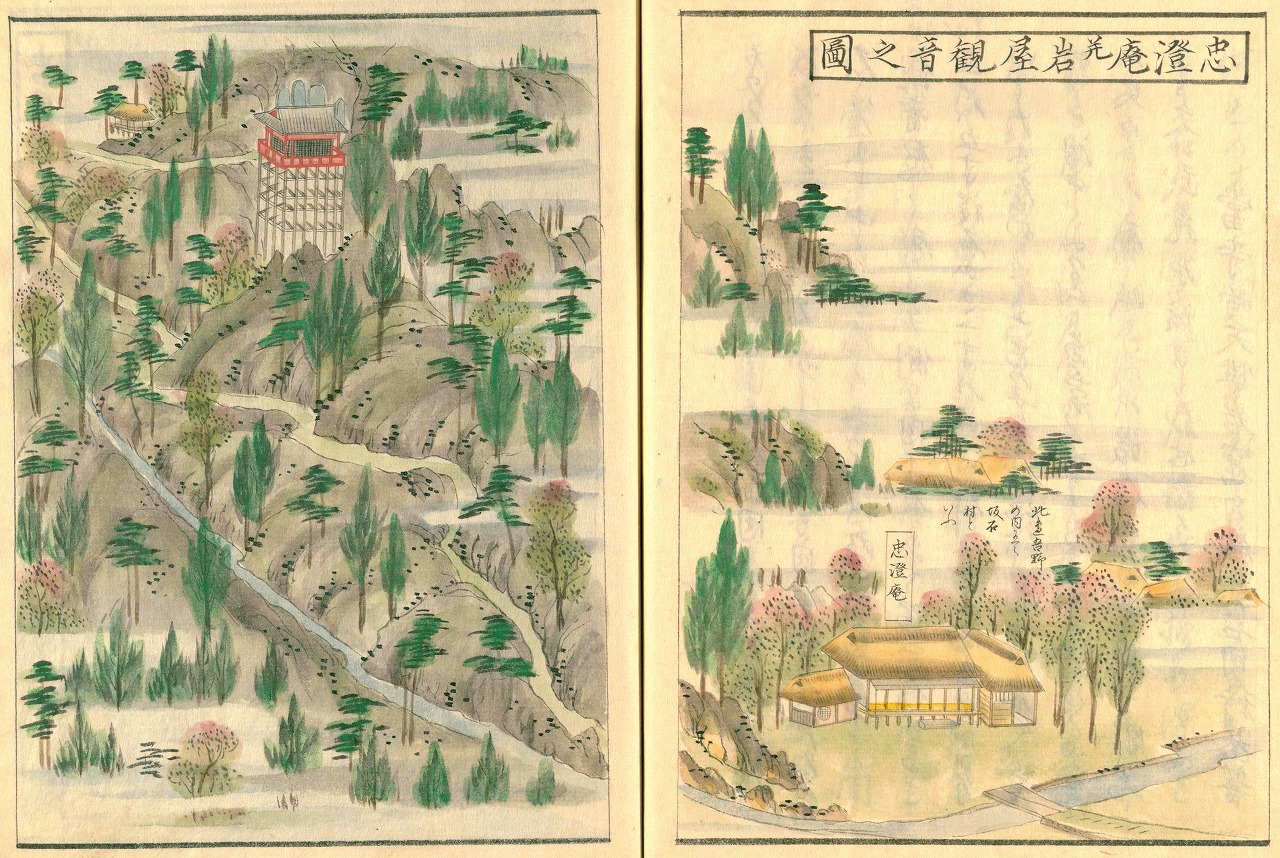 忠澄庵并岩屋観音之圖
此邊吾野
の内にして
坂石
村と
いふ
忠澄庵